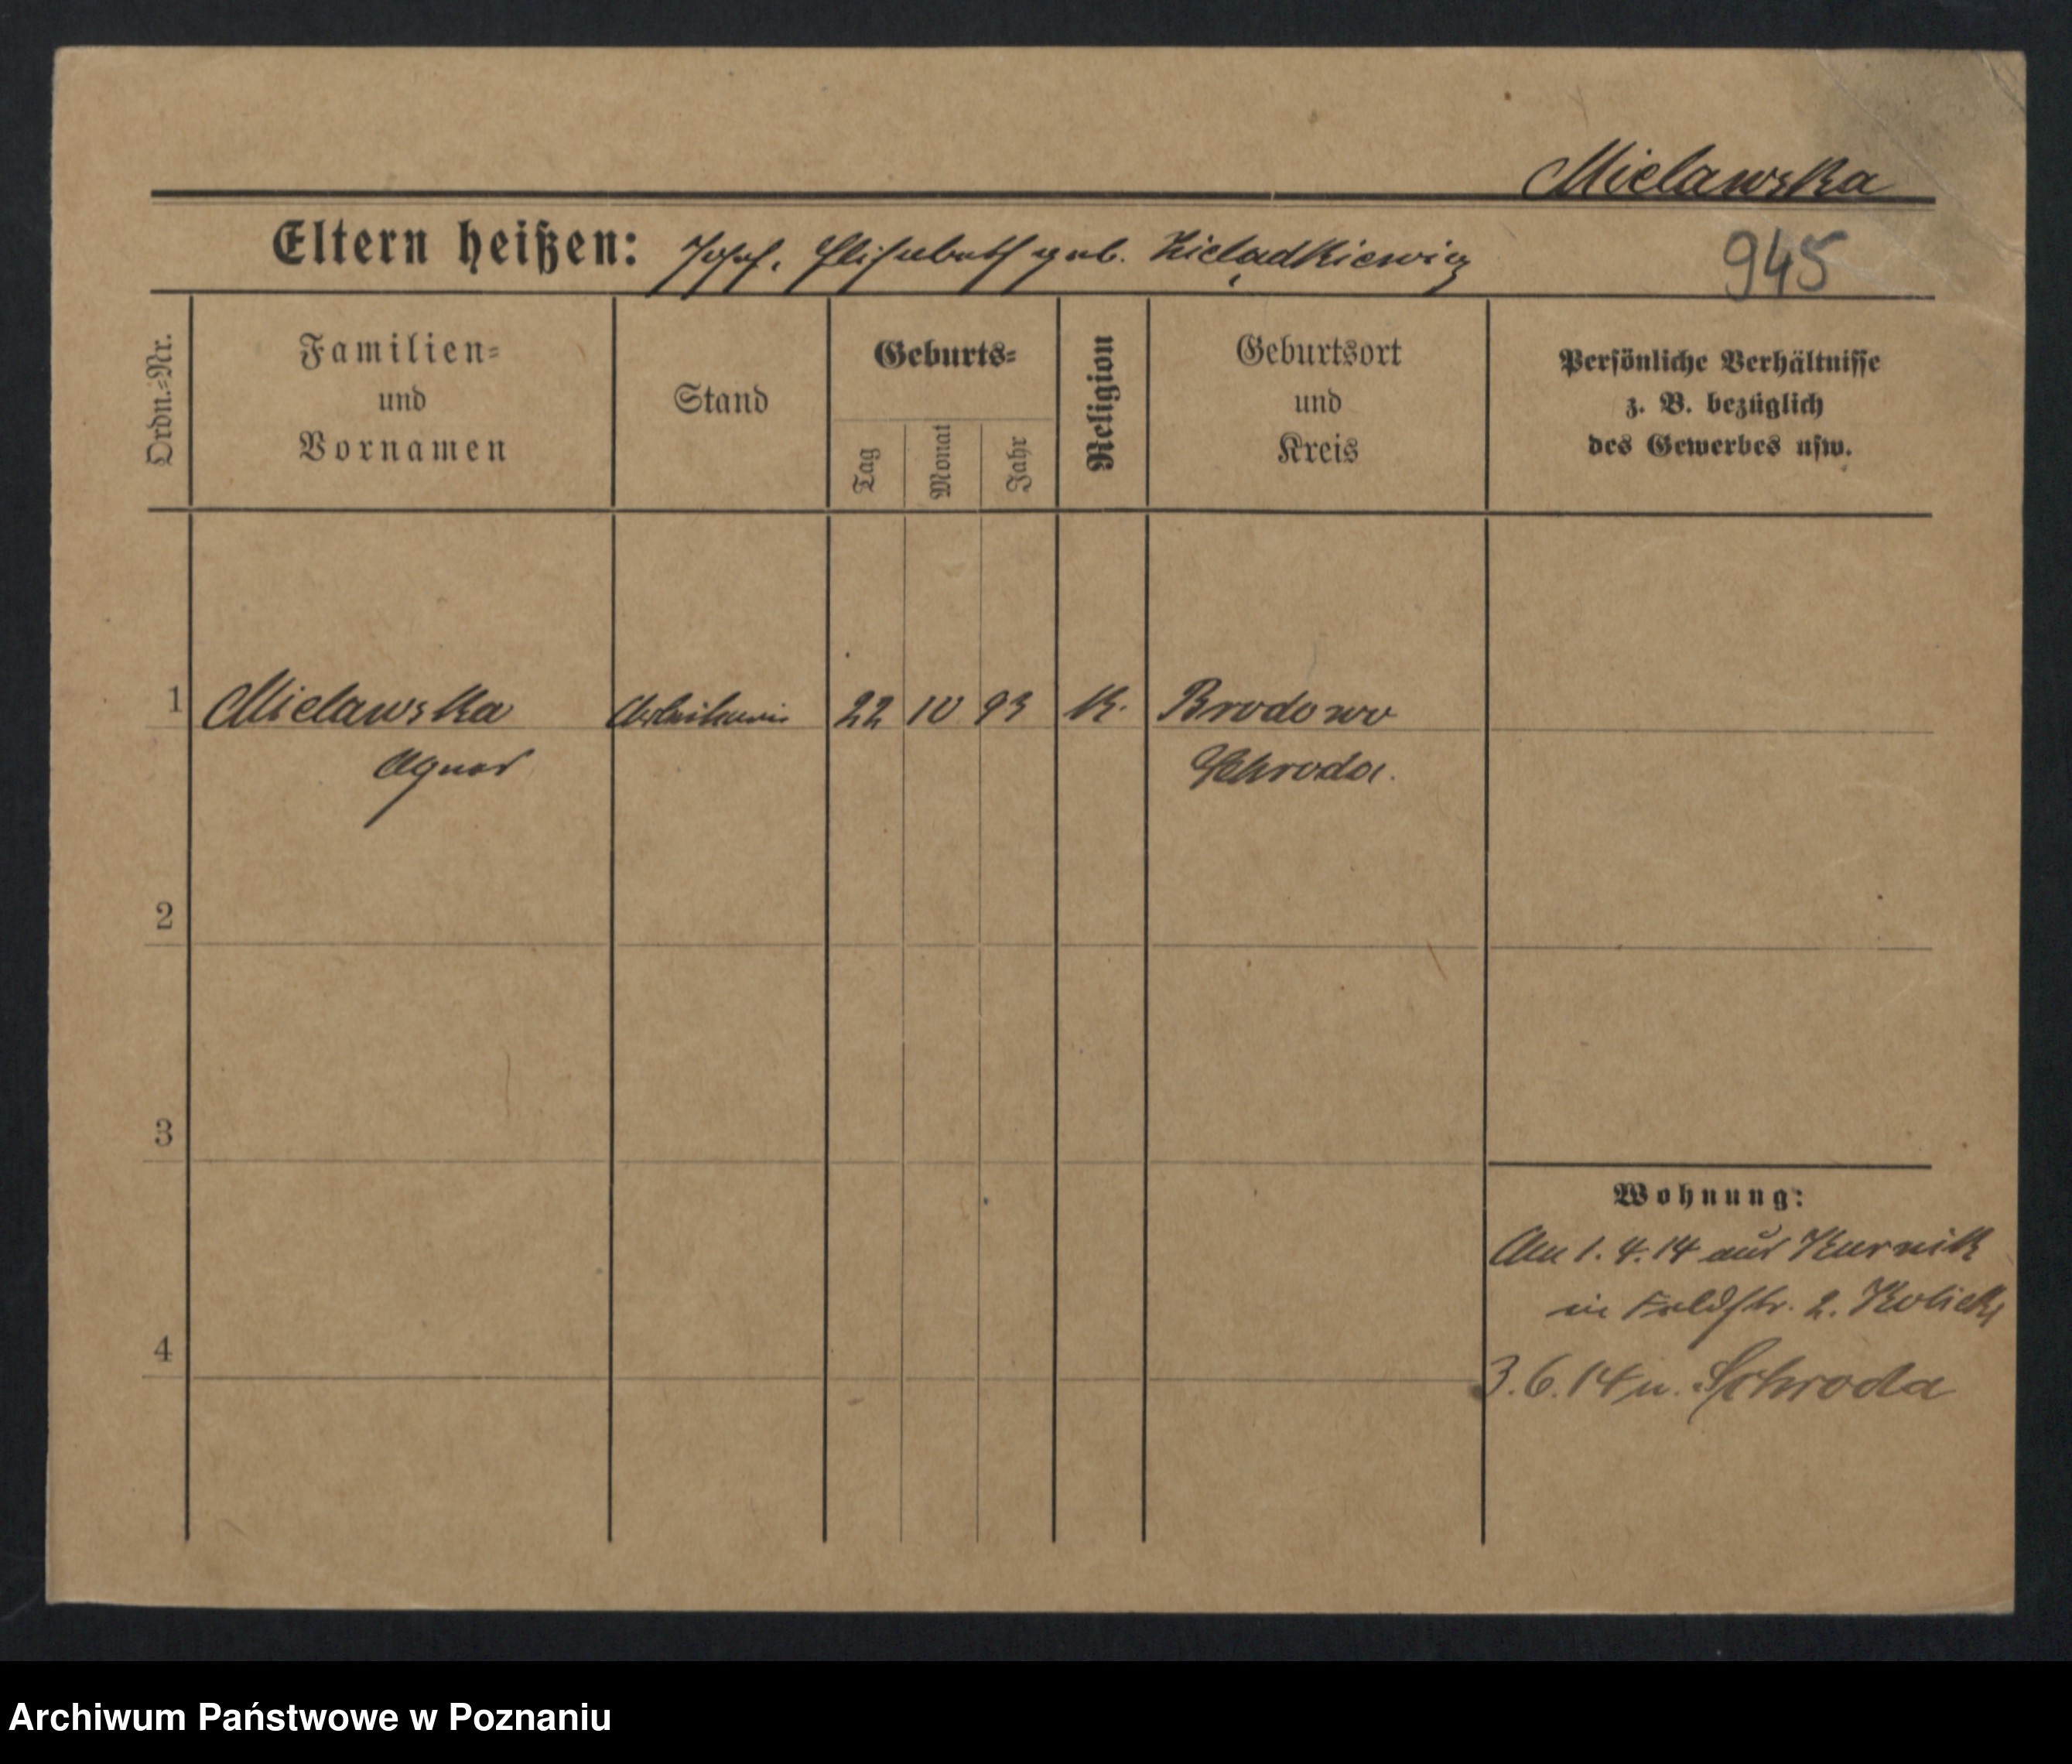 Mielawska
Eltern heißen: Josef, Elisabeth geb.
945
Ordn.=Nr.
Familien=
und
Vornamen
Stand
Geburts=
Tag
Monat
Jahr
Religion
Geburtsort
und
Kreis
Persönliche Verhältnisse
z. B. bezüglich
des Gewerbes usw.
1 Mielawska Arbeiterin 22 10 93 K. Brodowo
Agnes Schroda.
2
3
4
Wohnung:
Am 1. 4. 14 aus Kurnik
in Feldstr. 2.
3. 6. 14 n. Schroda
Archiwum Państwowe w Poznaniu